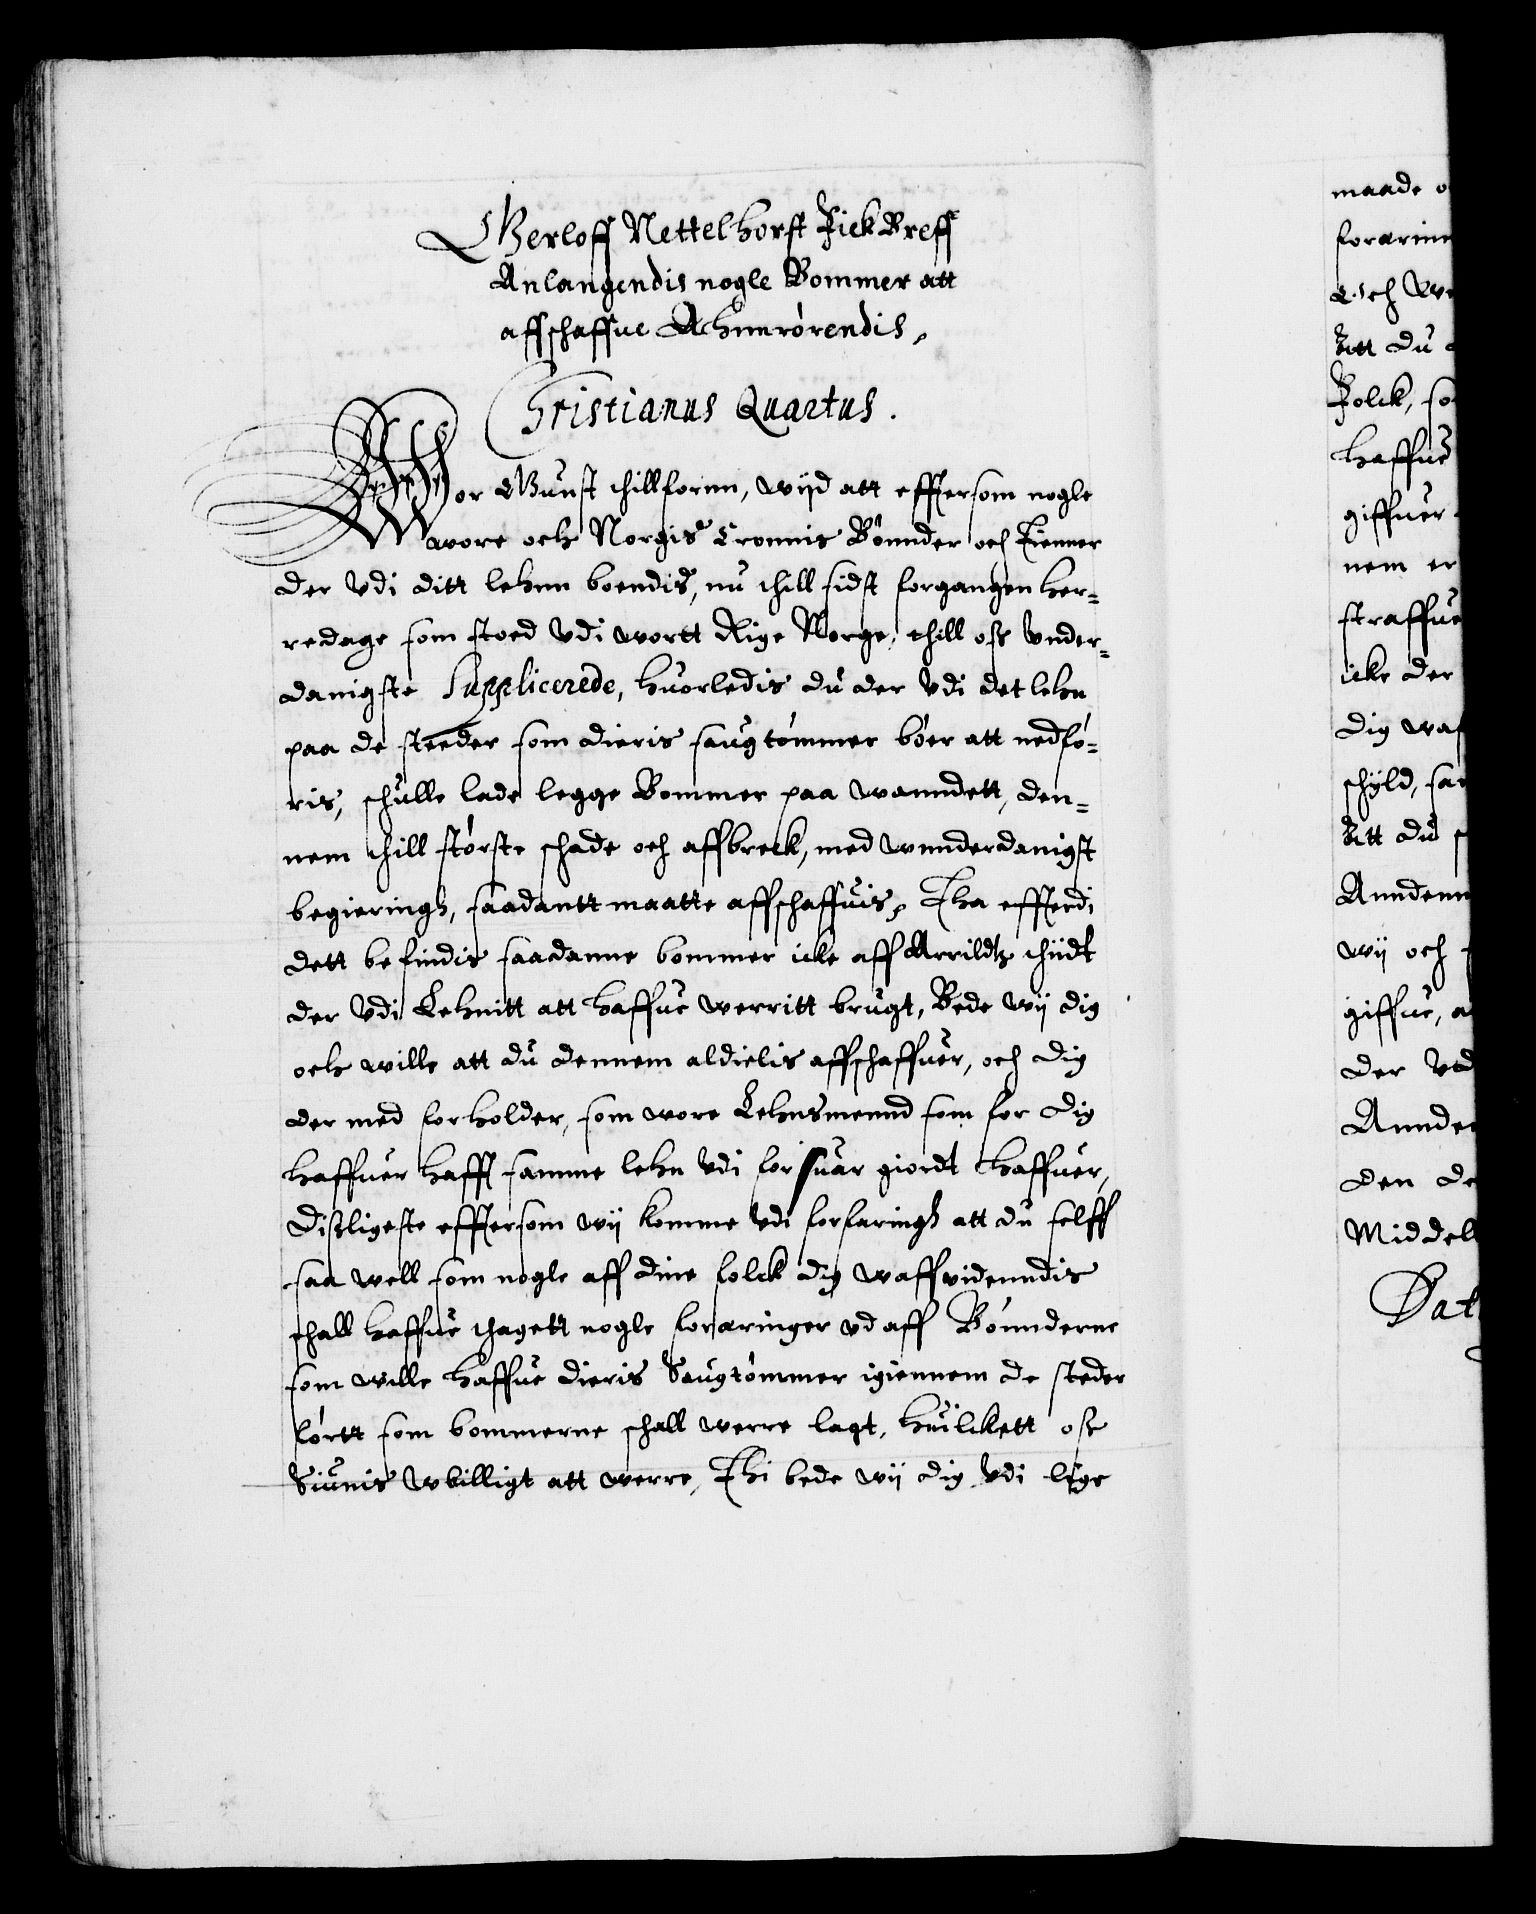 Gerloff Nettelhorst Fick Breff
Anlangendis nogle Bommer att
affschaffue Achnnrörendis,
Christianus Quartus.
Wor Gunst thillfornn, wijd att efftersom nogle
wore och Norgis Cronnis Bönnder och Tienner
der vdi ditt lehnn boendis, nu thill sidst forgangen her-
redage som stoed vdi wortt Rige Norge, thill oss vnder-
danigste Supplicerede, huorledis du der vdi det lehn
paa de steeder som dieris saugtömmer böer att nedfö-
ris, schulle lade legge Bommer paa wanndett, den-
nem thill störste schade och affbreck, med wnnderdanigst
begieringh, saadantt maatte affschaffuis, Tha effterdi
dett befindis saadanne bommer icke aff Arrildtz thiidt
der vdi Lehnitt att haffue werritt brugt, Bede wij dig
och wille att du dennem aldielis affschaffuer, och dig
der med forholder, som wore Lehnsmennd som for dig
haffuer hafft samme lehn vdi forsuar giordt haffuer,
Disligeste efftersom wij komme vdi forfaringh att du selff
saa well som nogle aff dine folck dig waffvidenndis
schall haffue thagett nogle foraringer vdaff Bönnderne
som wille haffue dieris Saugtömmer igiennem de steder
förtt som bommerne schall werre lagt, huilckett oss
Siunis wbilligt att werre, Thi bede wij dig vdi lige
maade
Och
Att du
Folck, so
haffue
giffuer
nem er
straffue
icke der
dig waf
schyld, saa
Att du
Anndenn
wij och
giffue, a
der vd
Annde
den de
Middel
Dat